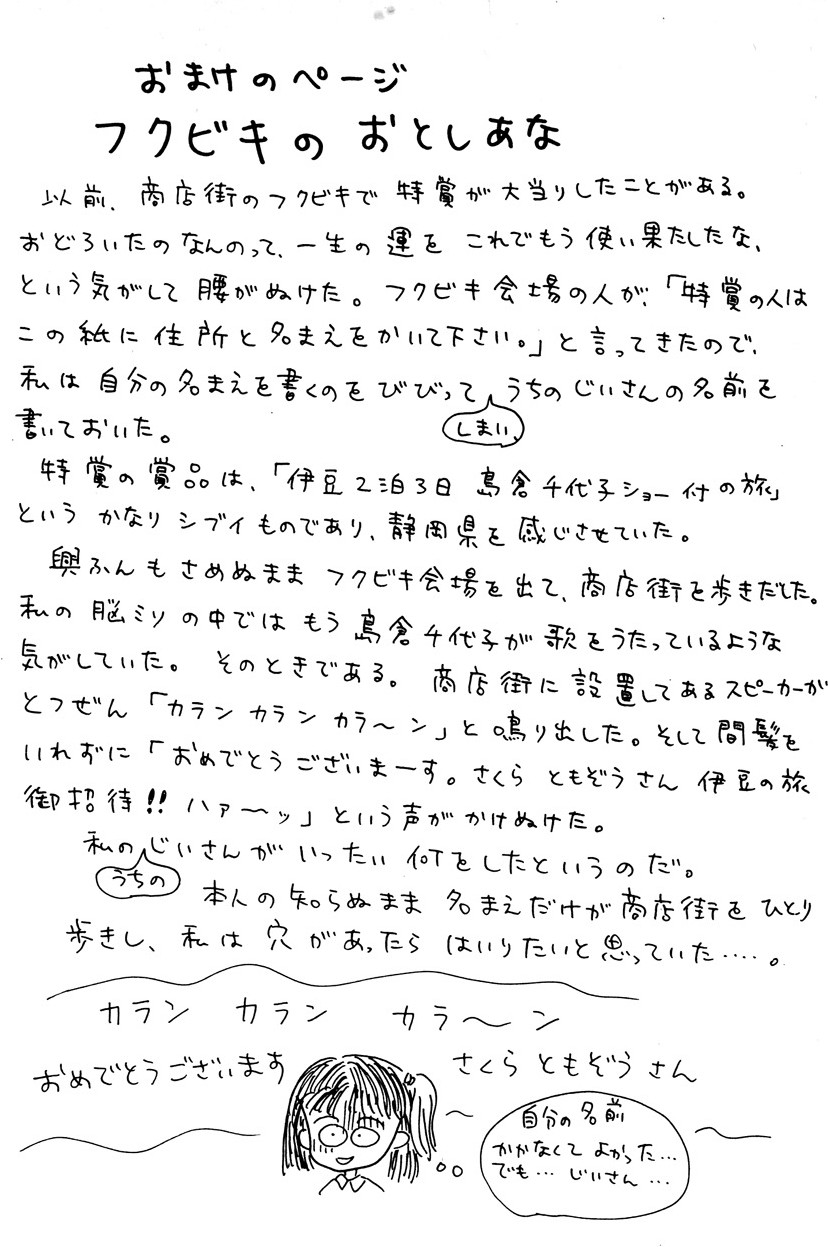 おまけのページ
フクビキの おとしあな
以前、商店街のフクビキで 特賞が大当りしたことがある。
おどろいたのなんのって、一生の運を これでもう使い果たしたな、
という気がして腰がぬけた。フクビキ会場の人が、「特賞の人は
この紙に住所と名まえをかいて下さい。」と言ってきたので、
私は自分の名まえを書くのをびびって うちのじいさんの名前を
しまい、
書いておいた。
特賞の賞品は、「伊豆2泊3日 島倉千代子ショー付の旅」
という かなり シブイものであり、静岡県を感じさせていた。
興ふんもさめぬまま フクビキ会場を出て、商店街を歩きだした。
私の脳ミソの中では もう 島倉千代子が歌をうたっているような
気がしていた。そのときである。商店街に設置してあるスピーカーが
とつぜん「カラン カラン カラ〜ン」と鳴り出した。そして間髪を
いれずに「おめでとうございまーす。さくら ともぞうさん 伊豆の旅
御招待!! ハァ〜ッ」という声が かけぬけた。
私のじいさんが いったい 何をしたというのだ。
うちの
本人の知らぬまま 名まえだけが商店街を ひとり
歩きし、私は 穴があったら はいりたいと思っていた‥‥。
カラン カラン カラ〜ン
おめでとうございます さくら ともぞう さん
自分の名前
かかなくて よかった…
でも… じいさん…